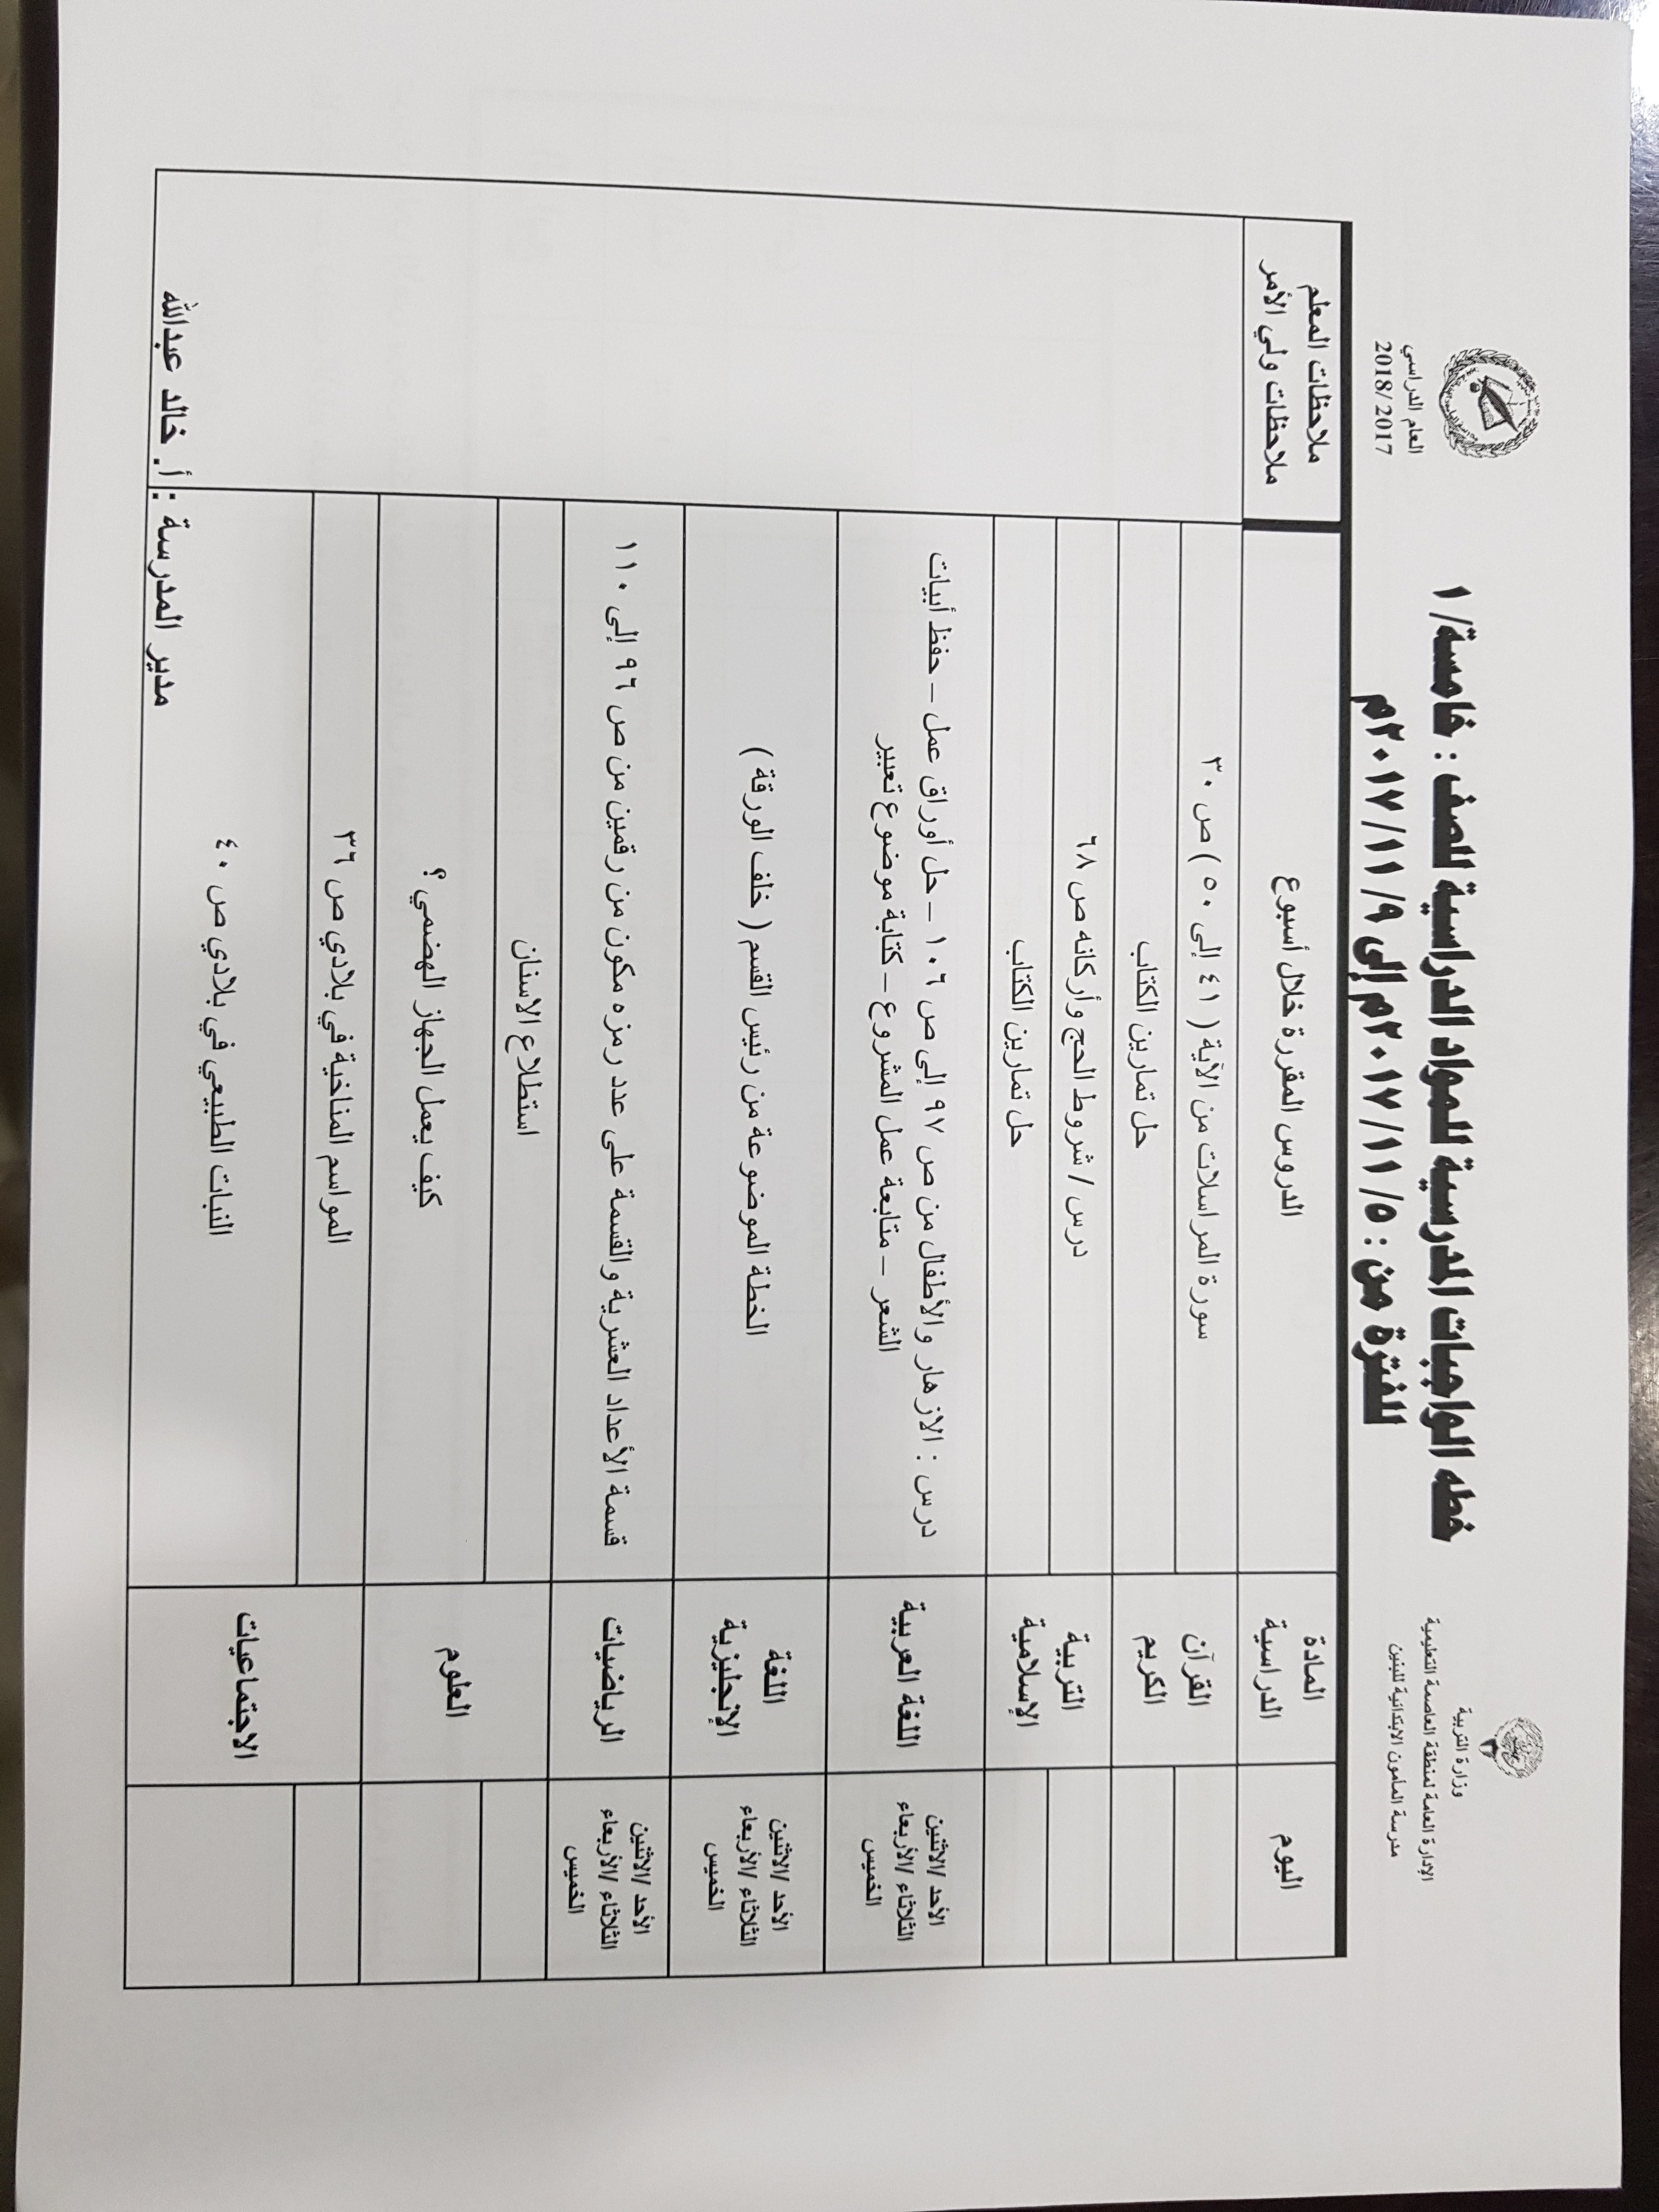 وزارة التربية
الإدارة العامة لمنطقة العاصمة التعليمية
مدرسة المأمون الابتدائية للبنين
خطه الواجبات المدرسية للمواد الدراسية للصف : خامسة/ ١
للفترة من : ٥/ ٢٠١٧/١١م إلى ٩/ ٢٠١٧/١١م
العام الدراسي
2018/ 2017
اليوم
المادة الدراسية
الدروس المقررة خلال أسبوع
ملاحظات المعلم
ملاحظات ولي الأمر
القرآن الكريم
سورة المراسلات من الآية ( ٤١ إلى ٥٠ ) ص ٣٠
حل تمارين الكتاب
التربية الإسلامية
درس / شروط الحج وأركانه ص ٦٨
حل تمارين الكتاب
الأحد /الاثنين
الثلاثاء /الأربعاء
الخميس
اللغة العربية
درس : الازهار والأطفال من ص ٩٧ إلى ص ١٠٦ – حل أوراق عمل – حفظ أبيات
الشعر – متابعة عمل المشروع – كتابة موضوع تعبير
الأحد /الاثنين
الثلاثاء /الأربعاء
الخميس
اللغة
الإنجليزية
الخطة الموضوعة من رئيس القسم ( خلف الورقة )
الأحد /الاثنين
الثلاثاء /الأربعاء
الخميس
الرياضيات
قسمة الأعداد العشرية والقسمة على عدد رمزه مكون من رقمين من ص ٩٦ إلى ١١٠
العلوم
استطلاع الاسنان
كيف يعمل الجهاز الهضمي ؟
الاجتماعيات
المواسم المناخية في بلادي ص ٣٦
النبات الطبيعي في بلادي ص ٤٠
مدير المدرسة : أ. خالد عبدالله